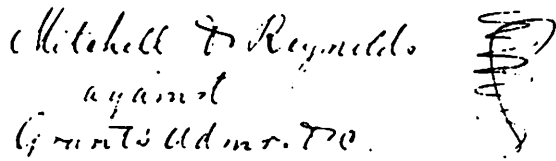 Mitchell & Reynolds
against
Grants Admr. &c.